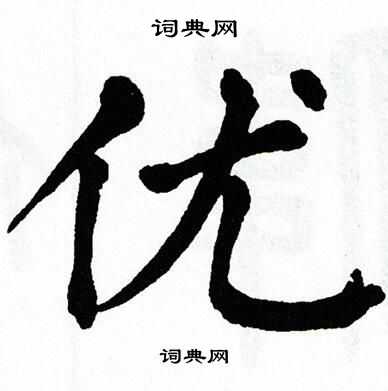 词典网
优
词典网